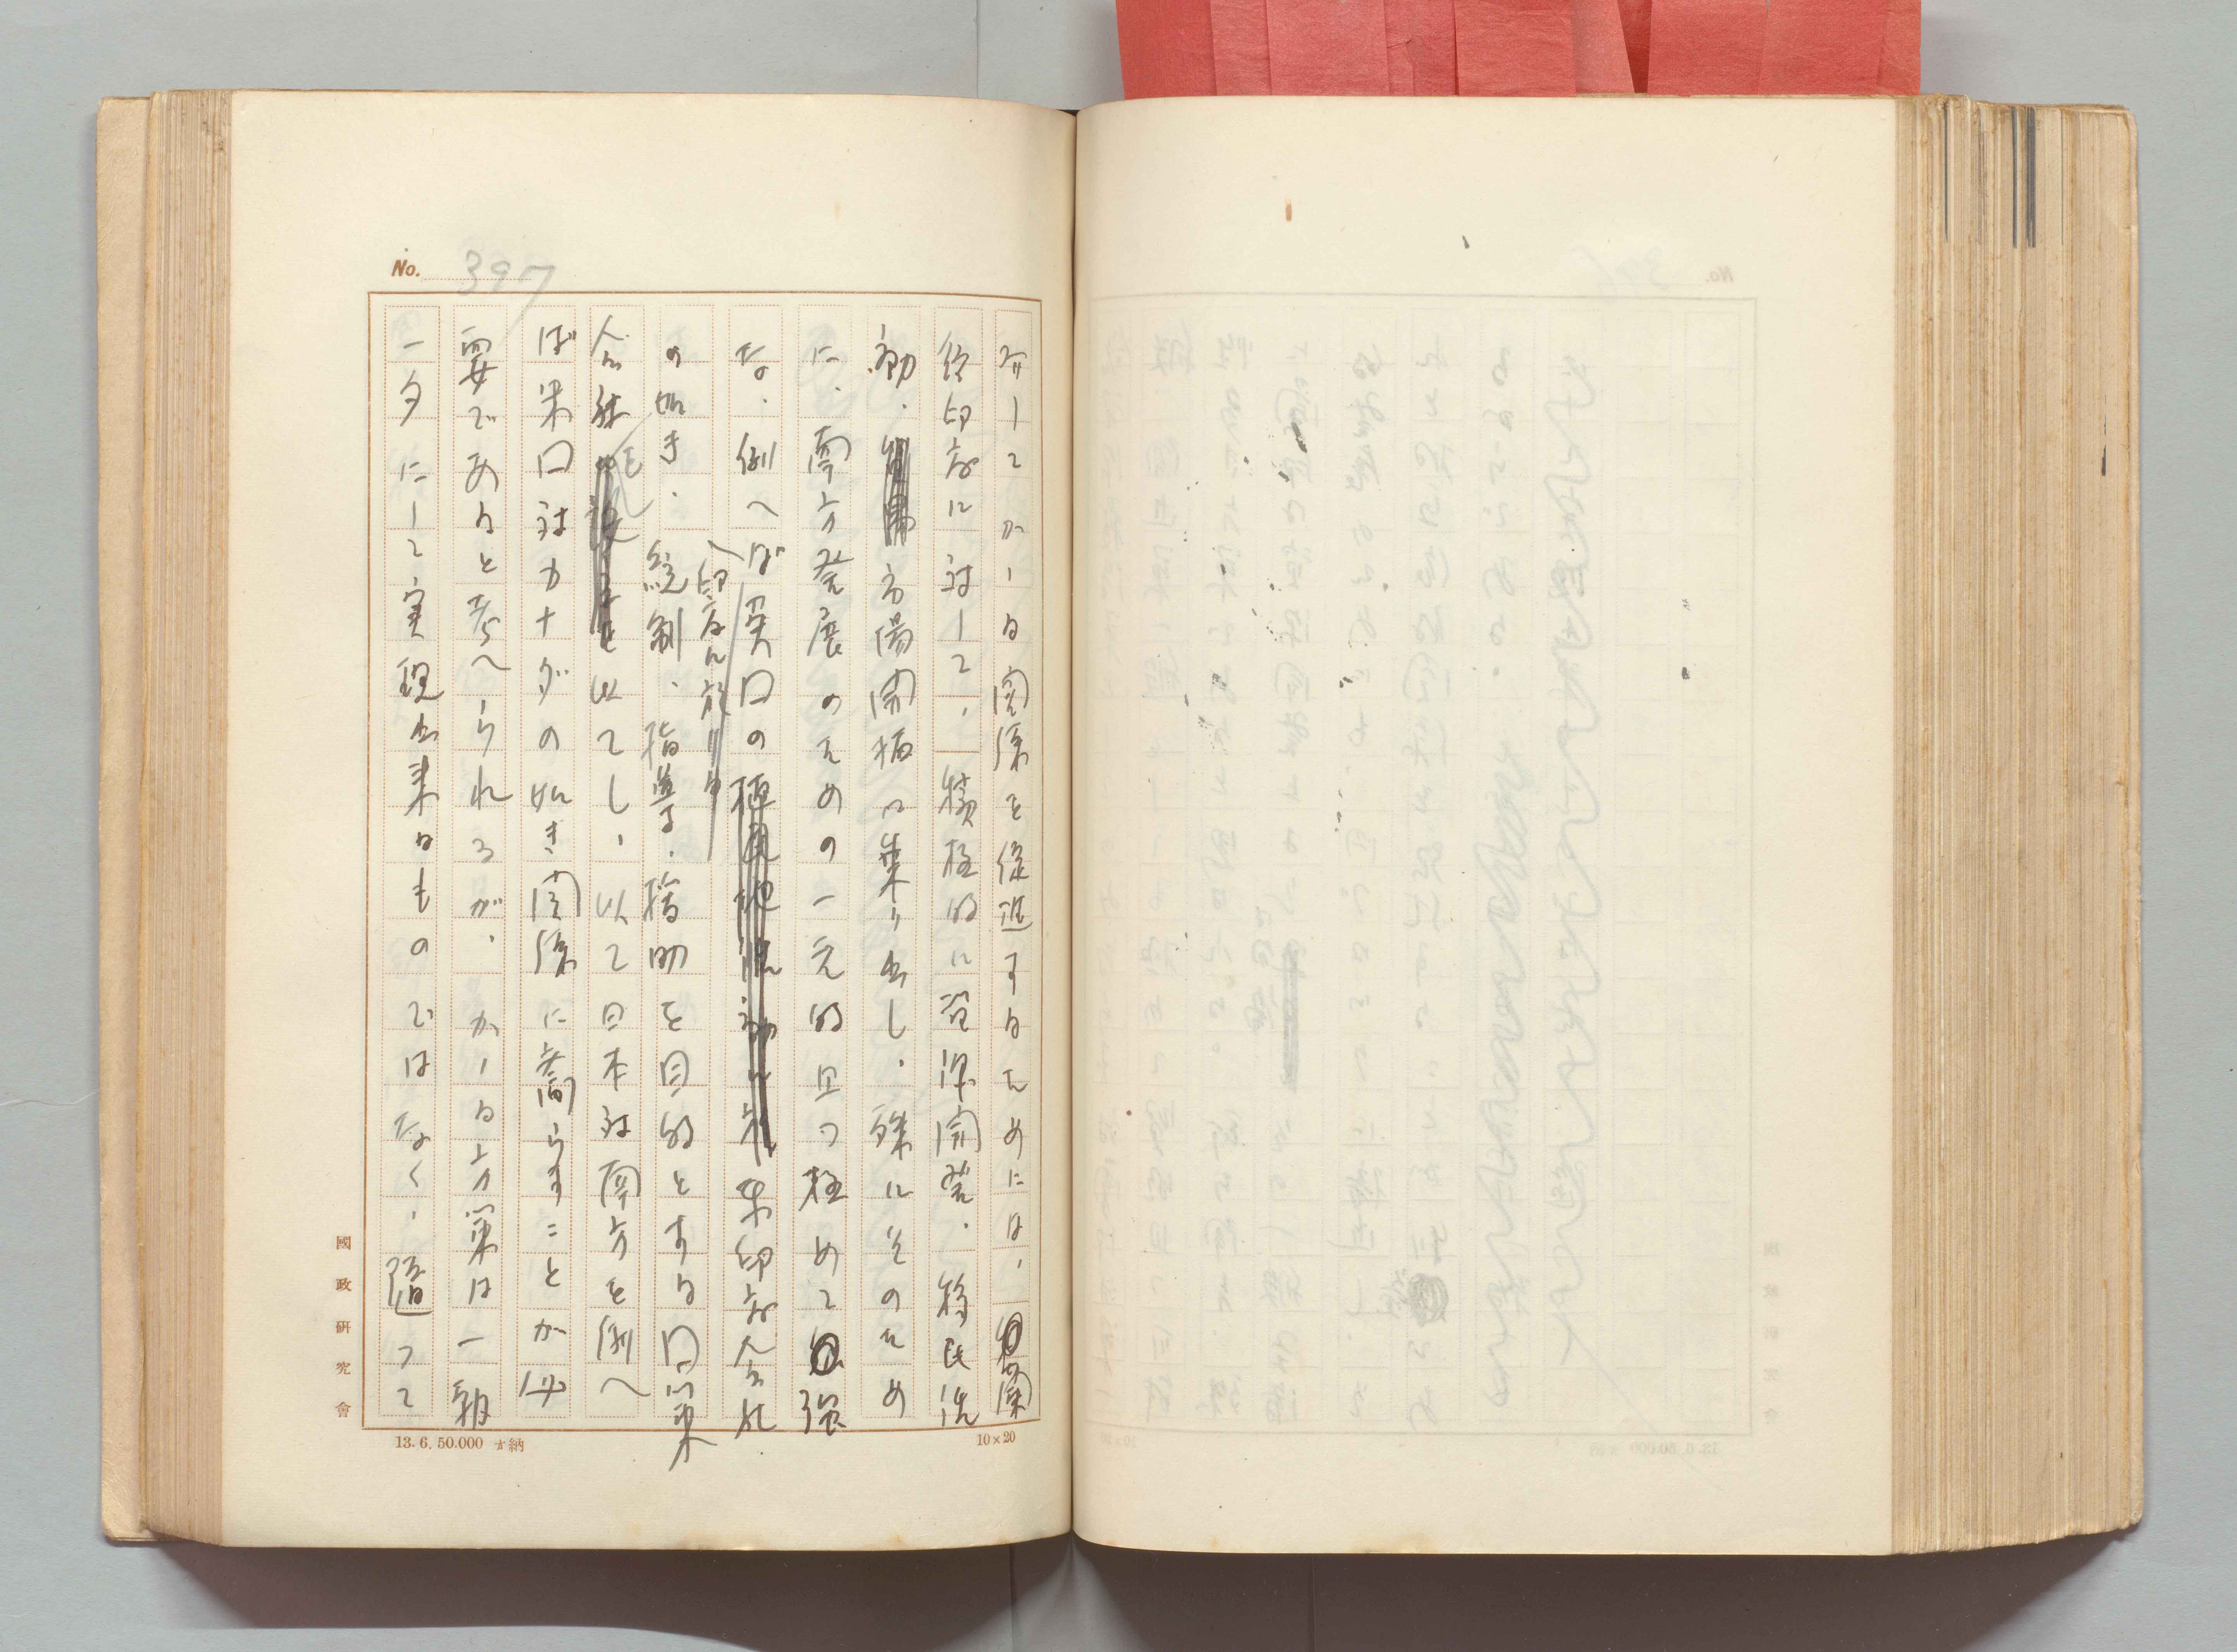 No. 397
而してかゝる関係を促進するためには、蘭
領印度に対して、積極的に資源開発、移民活
動、市場開拓に乗り出し、殊にそのため
に、南方発展のための一元的且つ極めて強
な、例へば英国の東印度会社
印度に於ける
の如き、統制、指導、援助を目的とする国策
会社を以てし、以て日本対南方を例へ
ば米国対カナダの如き関係に齎らすことが必
要であると考へられるが、かゝる方策は一朝
一夕にして実現出来るものではなく、随つて
國政研究會
13.6.50.000 納
10×20